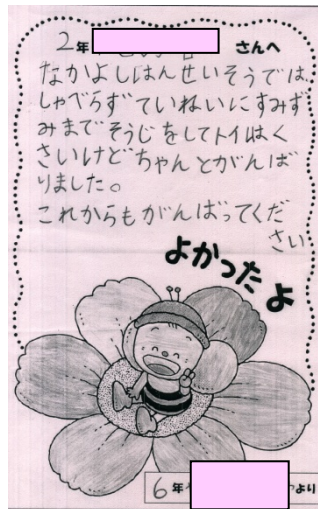 2年 さんへ
なかよしはんせいそうでは、
しゃべらずていねいにすみず
みまでそうじをしてトイはく
さいけどちゃんとがんば
りました。
これからもがんばってくだ
さい
よかったよ
6年 より